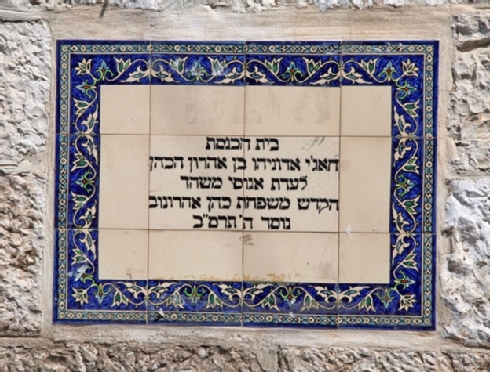 בית הכנסת
חאג׳י אדוניהו בן אהרון הכהן
לעדת אנוסי משהד
הקדש משפחת כהן אהרונוב
נוסד ה׳תרס״כ